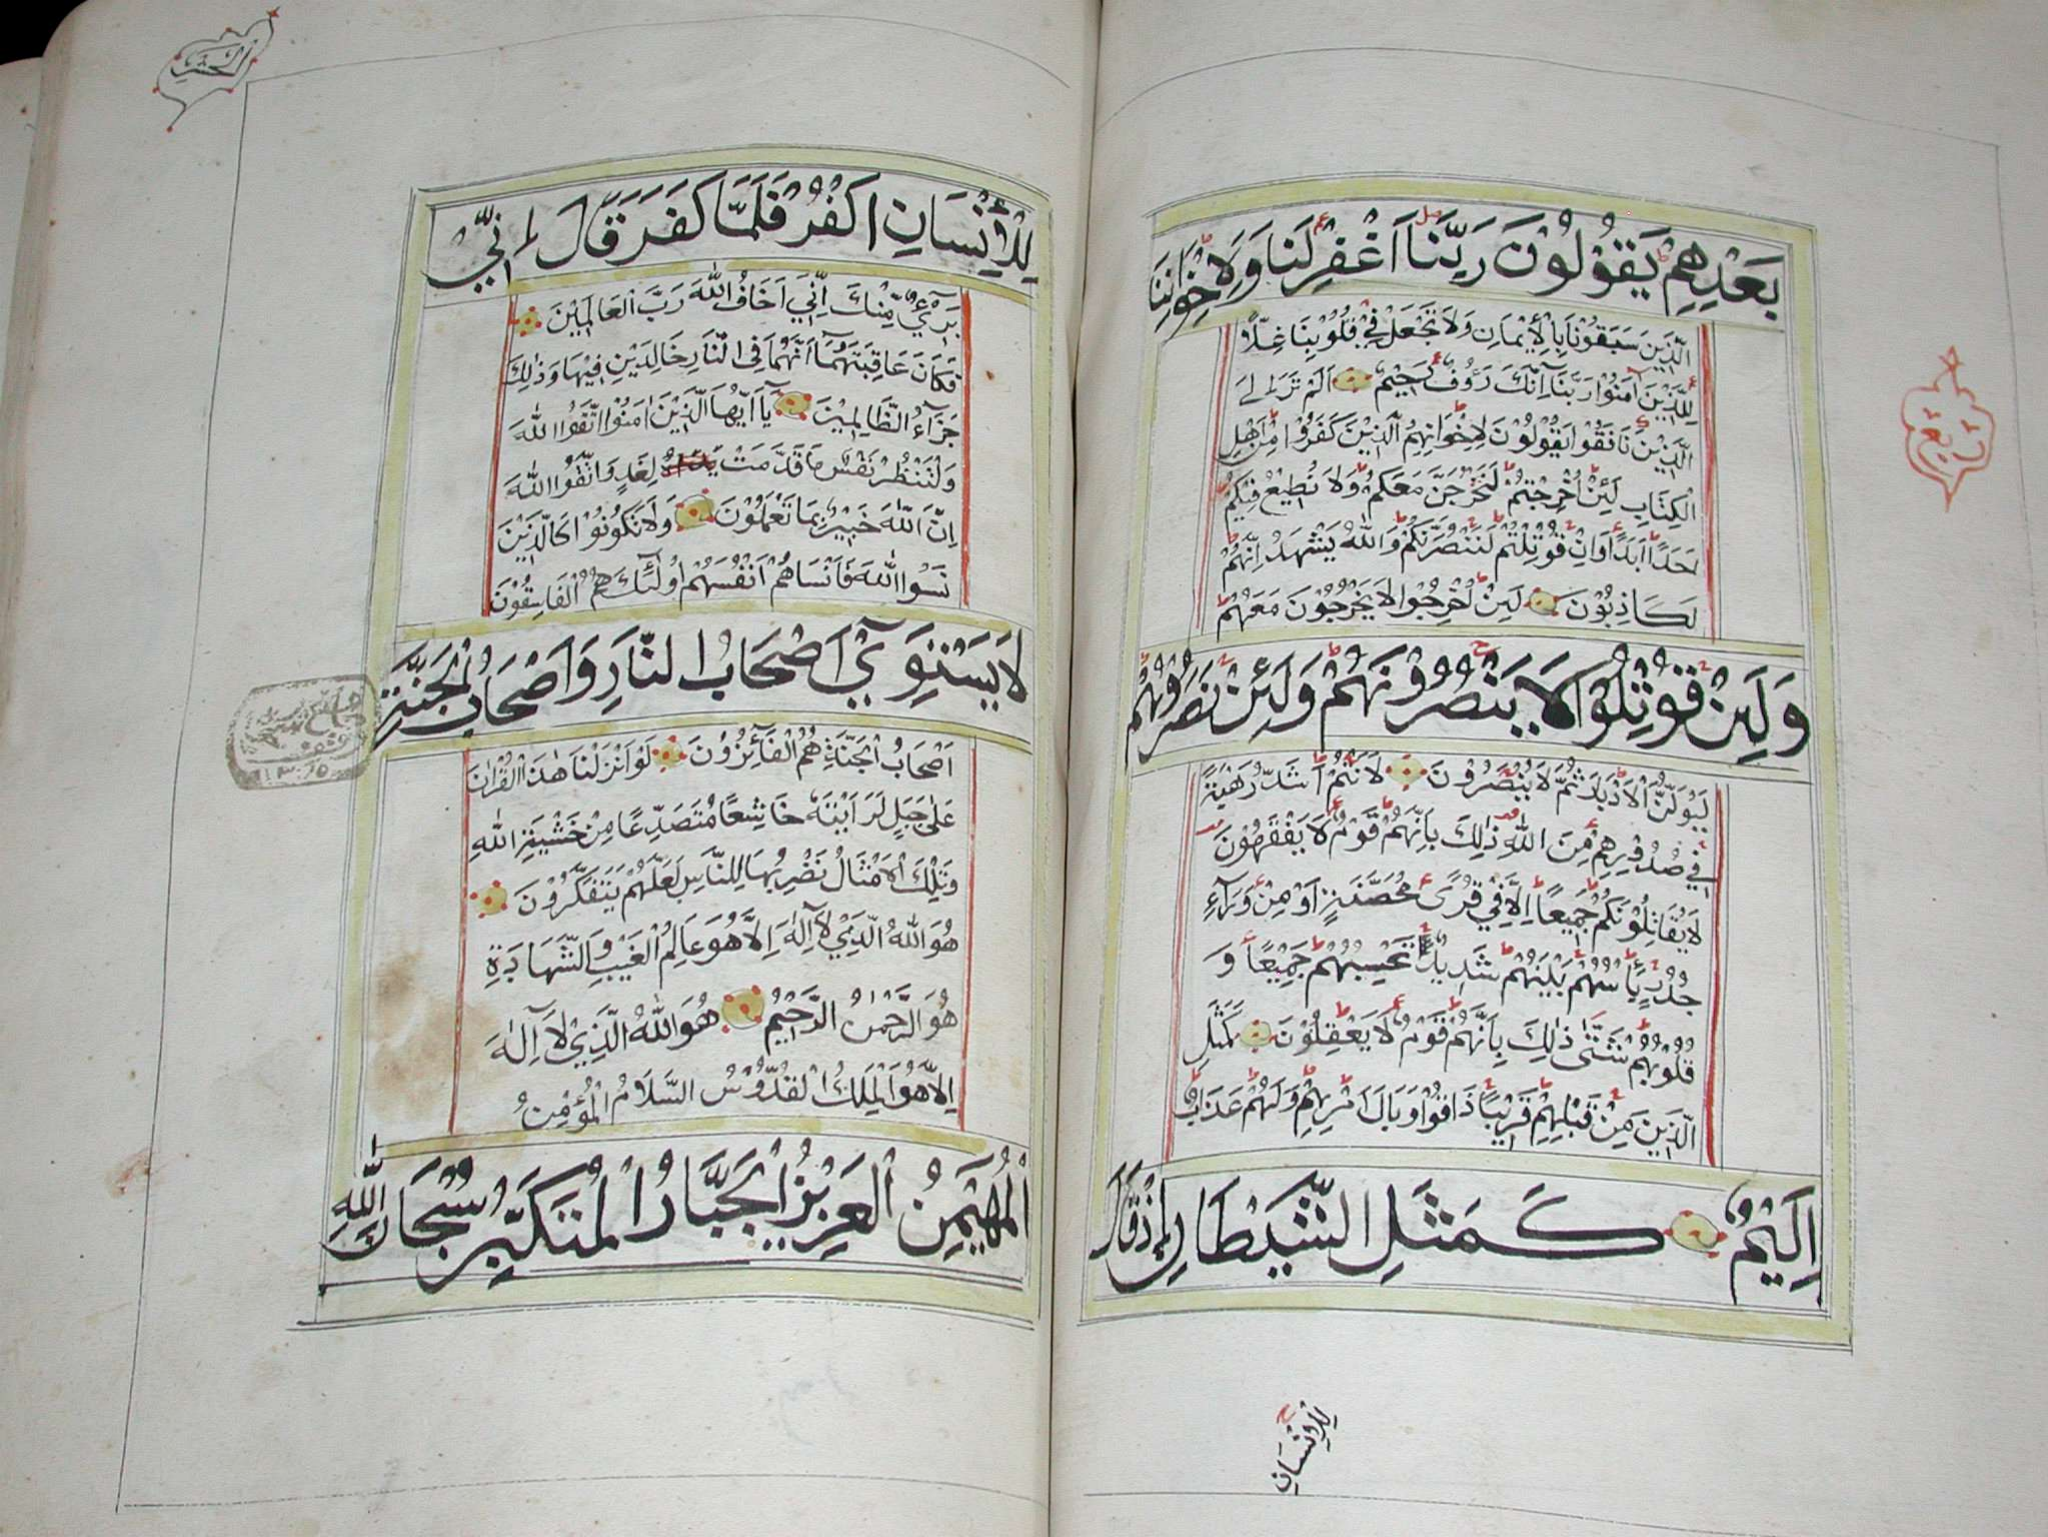 بَعْدِهِمْ يَقُوْلُوْنَ رَبَّنَا اَغْفِرْ لَنَا وَلِاِخْوَانِنَا
الَّذِيْنَ سَبَقُوْنَا بِالْاِيْمَانِ وَلَا تَجْعَلْ فِيْ قُلُوْبِنَا غِلّاً
لِلَّذِيْنَ آمَنُوْا رَبَّنَا اِنَّكَ رَؤُوْفٌ رَحِيْمٌ اَلَمْ تَرَ اِلَى
الَّذِيْنَ نَافَقُوْا يَقُوْلُوْنَ لِاِخْوَانِهِمُ الَّذِيْنَ كَفَرُوْا مِنْ اَهْلِ
الْكِتَابِ لَئِنْ اُخْرِجْتُمْ لَنَخْرُجَنَّ مَعَكُمْ وَلَا نُطِيْعُ فِيْكُمْ
اَحَدًا اَبَدًا وَاِنْ قُوْتِلْتُمْ لَنَنْصُرَنَّكُمْ وَاللّٰهُ يَشْهَدُ اِنَّهُمْ
لَكَاذِبُوْنَ لَئِنْ اُخْرِجُوْا لَا يَخْرُجُوْنَ مَعَهُمْ
وَلَئِنْ قُوْتِلُوْا لَا يَنْصُرُوْنَهُمْ وَلَئِنْ نَصَرُوْهُمْ
لَيُوَلُّنَّ الْاَدْبَارَ ثُمَّ لَا يُنْصَرُوْنَ لَاَنْتُمْ اَشَدُّ رَهْبَةً
فِيْ صُدُوْرِهِمْ مِنَ اللّٰهِ ذٰلِكَ بِاَنَّهُمْ قَوْمٌ لَا يَفْقَهُوْنَ
لَا يُقَاتِلُوْنَكُمْ جَمِيْعًا اِلَّا فِيْ قُرًى مُحَصَّنَةٍ اَوْ مِنْ وَرَآءِ
جُدُرٍ بَأْسُهُمْ بَيْنَهُمْ شَدِيْدٌ تَحْسِبُهُمْ جَمِيْعًا وَ
قُلُوْبُهُمْ شَتّٰى ذٰلِكَ بِاَنَّهُمْ قَوْمٌ لَا يَعْقِلُوْنَ كَمَثَلِ
الَّذِيْنَ مِنْ قَبْلِهِمْ قَرِيْبًا ذَاقُوْا وَبَالَ اَمْرِهِمْ وَلَهُمْ عَذَابٌ
اَلِيْمٌ كَمَثَلِ الشَّيْطَانِ اِذْ قَالَ
لِلْاِنْسَانِ
لِلْاِنْسَانِ اكْفُرْ فَلَمَّا كَفَرَ قَالَ اِنِّيْ
بَرِيْٓءٌ مِنْكَ اِنِّيْ اَخَافُ اللّٰهَ رَبَّ الْعَالَمِيْنَ
فَكَانَ عَاقِبَتَهُمَا اَنَّهُمَا فِى النَّارِ خَالِدَيْنِ فِيْهَا وَذٰلِكَ
جَزَآءُ الظَّالِمِيْنَ يَآ اَيُّهَا الَّذِيْنَ اٰمَنُوْا اتَّقُوْا اللّٰهَ
وَلْتَنْظُرْ نَفْسٌ مَا قَدَّمَتْ لِغَدٍ وَاتَّقُوْا اللّٰهَ
اِنَّ اللّٰهَ خَبِيْرٌ بِمَا تَعْمَلُوْنَ وَلَا تَكُوْنُوْا كَالَّذِيْنَ
نَسُوْا اللّٰهَ فَاَنْسَاهُمْ اَنْفُسَهُمْ اُولٰٓئِكَ هُمُ الْفَاسِقُوْنَ
لَا يَسْتَوِيْٓ اَصْحَابُ النَّارِ وَاَصْحَابُ الْجَنَّةِ
اَصْحَابُ الْجَنَّةِ هُمُ الْفَآئِزُوْنَ لَوْ اَنْزَلْنَا هٰذَا الْقُرْاٰنَ
عَلٰى جَبَلٍ لَرَاَيْتَهُ خَاشِعًا مُتَصَدِّعًا مِنْ خَشْيَةِ اللّٰهِ
وَتِلْكَ الْاَمْثَالُ نَضْرِبُهَا لِلنَّاسِ لَعَلَّهُمْ يَتَفَكَّرُوْنَ
هُوَ اللّٰهُ الَّذِيْ لَآ اِلٰهَ اِلَّا هُوَ عَالِمُ الْغَيْبِ وَالشَّهَادَةِ
هُوَ الرَّحْمٰنُ الرَّحِيْمُ هُوَ اللّٰهُ الَّذِيْ لَآ اِلٰهَ
اِلَّا هُوَ الْمَلِكُ الْقُدُّوْسُ السَّلَامُ الْمُؤْمِنُ
الْمُهَيْمِنُ الْعَزِيْزُ الْجَبَّارُ الْمُتَكَبِّرُ سُبْحَانَ اللّٰهِ